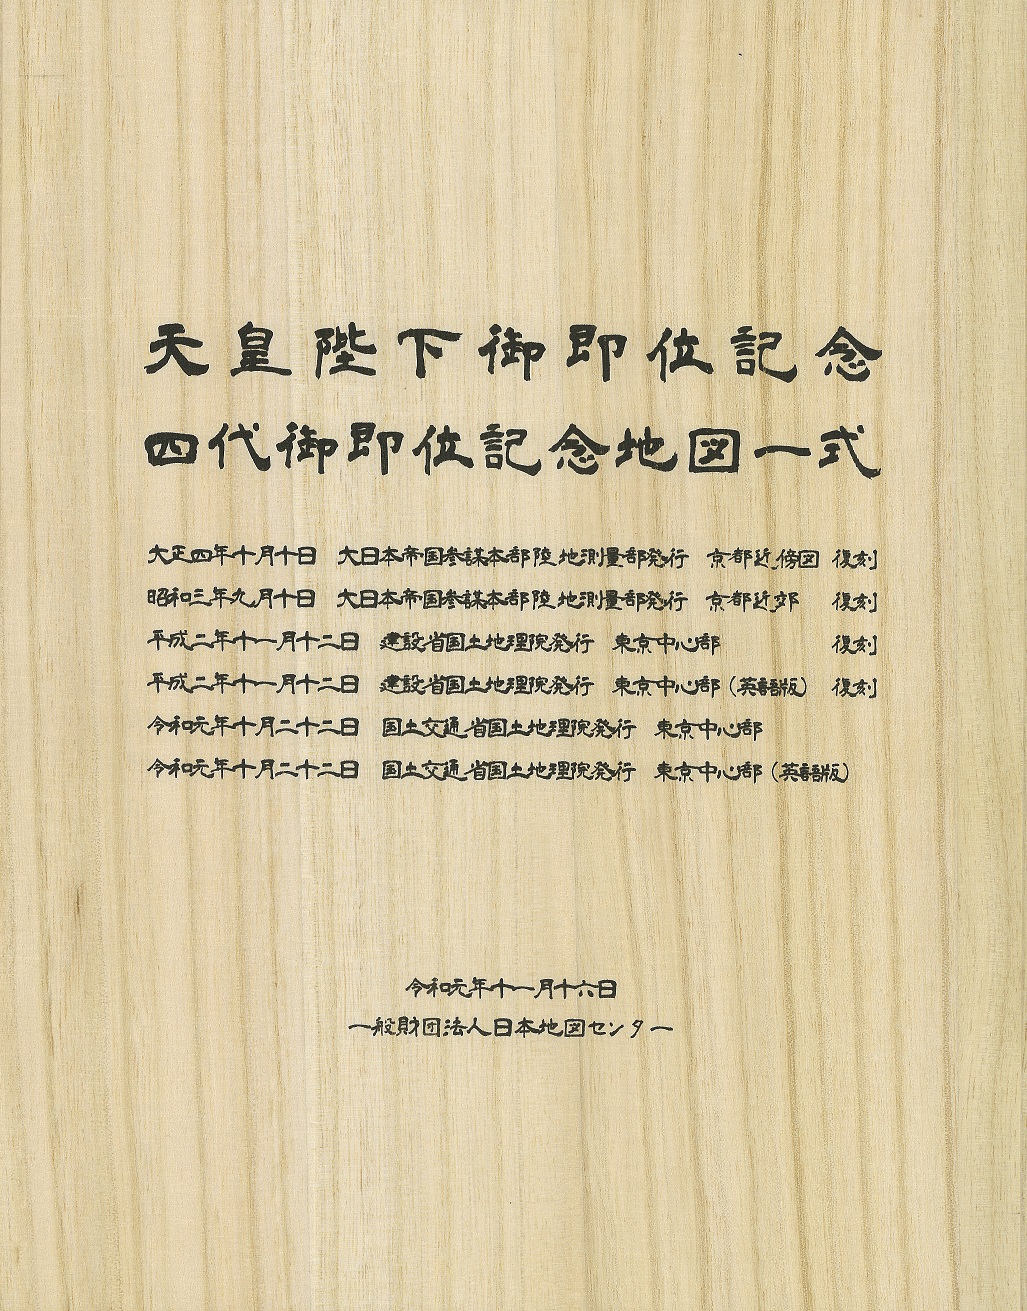 天皇陛下御即位記念
四代御即位記念地図一式
大正四年十月十日　大日本帝国参謀本部陸地測量部発行　京都近傍図　復刻
昭和三年九月十日　大日本帝国参謀本部陸地測量部発行　京都近郊　復刻
平成二年十一月十二日　建設省国土地理院発行　東京中心部　復刻
平成二年十一月十二日　建設省国土地理院発行　東京中心部（英語版）　復刻
令和元年十月二十二日　国土交通省国土地理院発行　東京中心部
令和元年十月二十二日　国土交通省国土地理院発行　東京中心部（英語版）
令和元年十一月十六日
一般財団法人日本地図センター